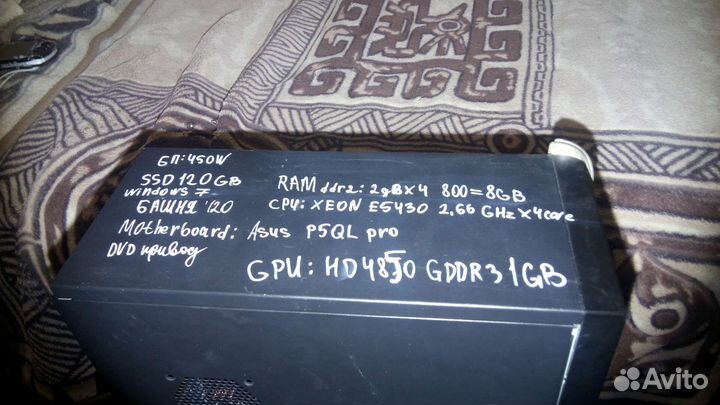 БП: 450W
SSD 120GB
windows 7
БАШНЯ '120
Motherboard: Asus P5QL pro
DVD привод
RAM ddr2: 2gB X 4 800 = 8GB
CPU: XEON E5430 2,66 GHz X 4 core
GPU: HD4850 GDDR3 1GB
Avito